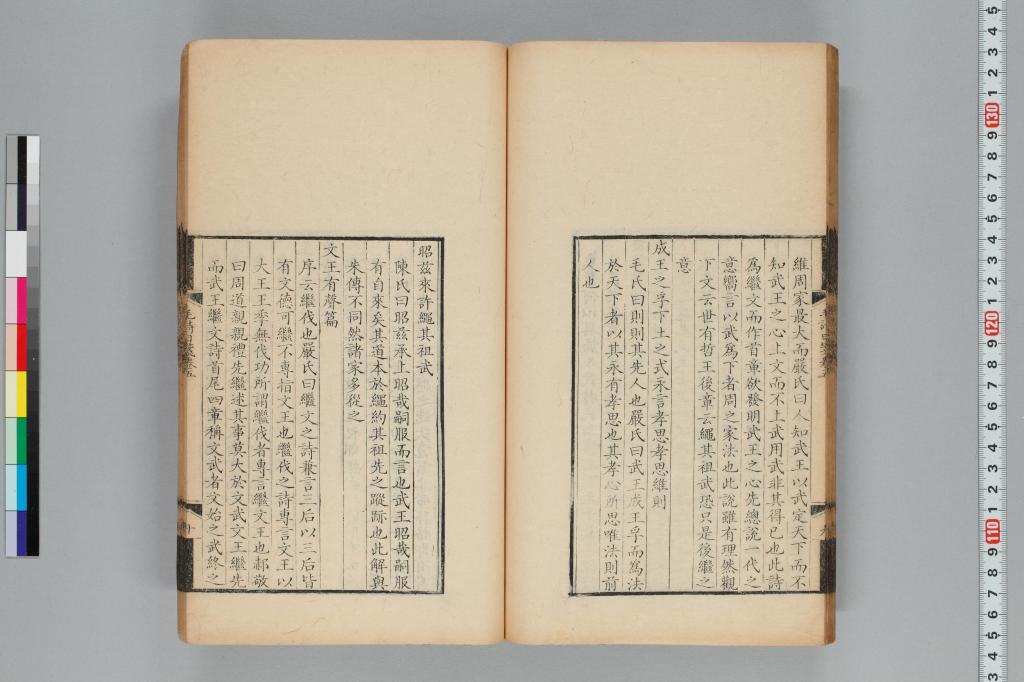 維周家最大而嚴氏曰人知武王以武定天下而不
知武王之心上文而不上武用武非其得已也此詩
爲繼文而作首章欲發明武王之心先總說一代之
意嚮言以武爲下者周之家法也此說雖有理然觀
下文云世有哲王後章云繩其祖武恐只是後繼之
意
成王之孚下土之式永言孝思孝思維則
毛氏曰則則其先人也嚴氏曰武王成王孚而爲法
於天下者以其永有孝思也其孝心所思唯法則前
人也
昭茲來許繩其祖武
陳氏曰昭茲承上昭哉嗣服而言也武王昭哉嗣服
有自來矣其道本於繩約其祖先之蹤跡也此解與
朱傳不同然諸家多從之
文王有聲篇
序云繼伐也嚴氏曰繼文之詩兼言三后以三后皆
有文德可繼不專指文王也繼伐之詩專言文王以
大王王季無伐功所謂繼伐者專言繼文王也郝敬
曰周道親親禮先繼述其事莫大於文武文王繼先
而武王繼文詩首尾四章稱文武者文始之武終之